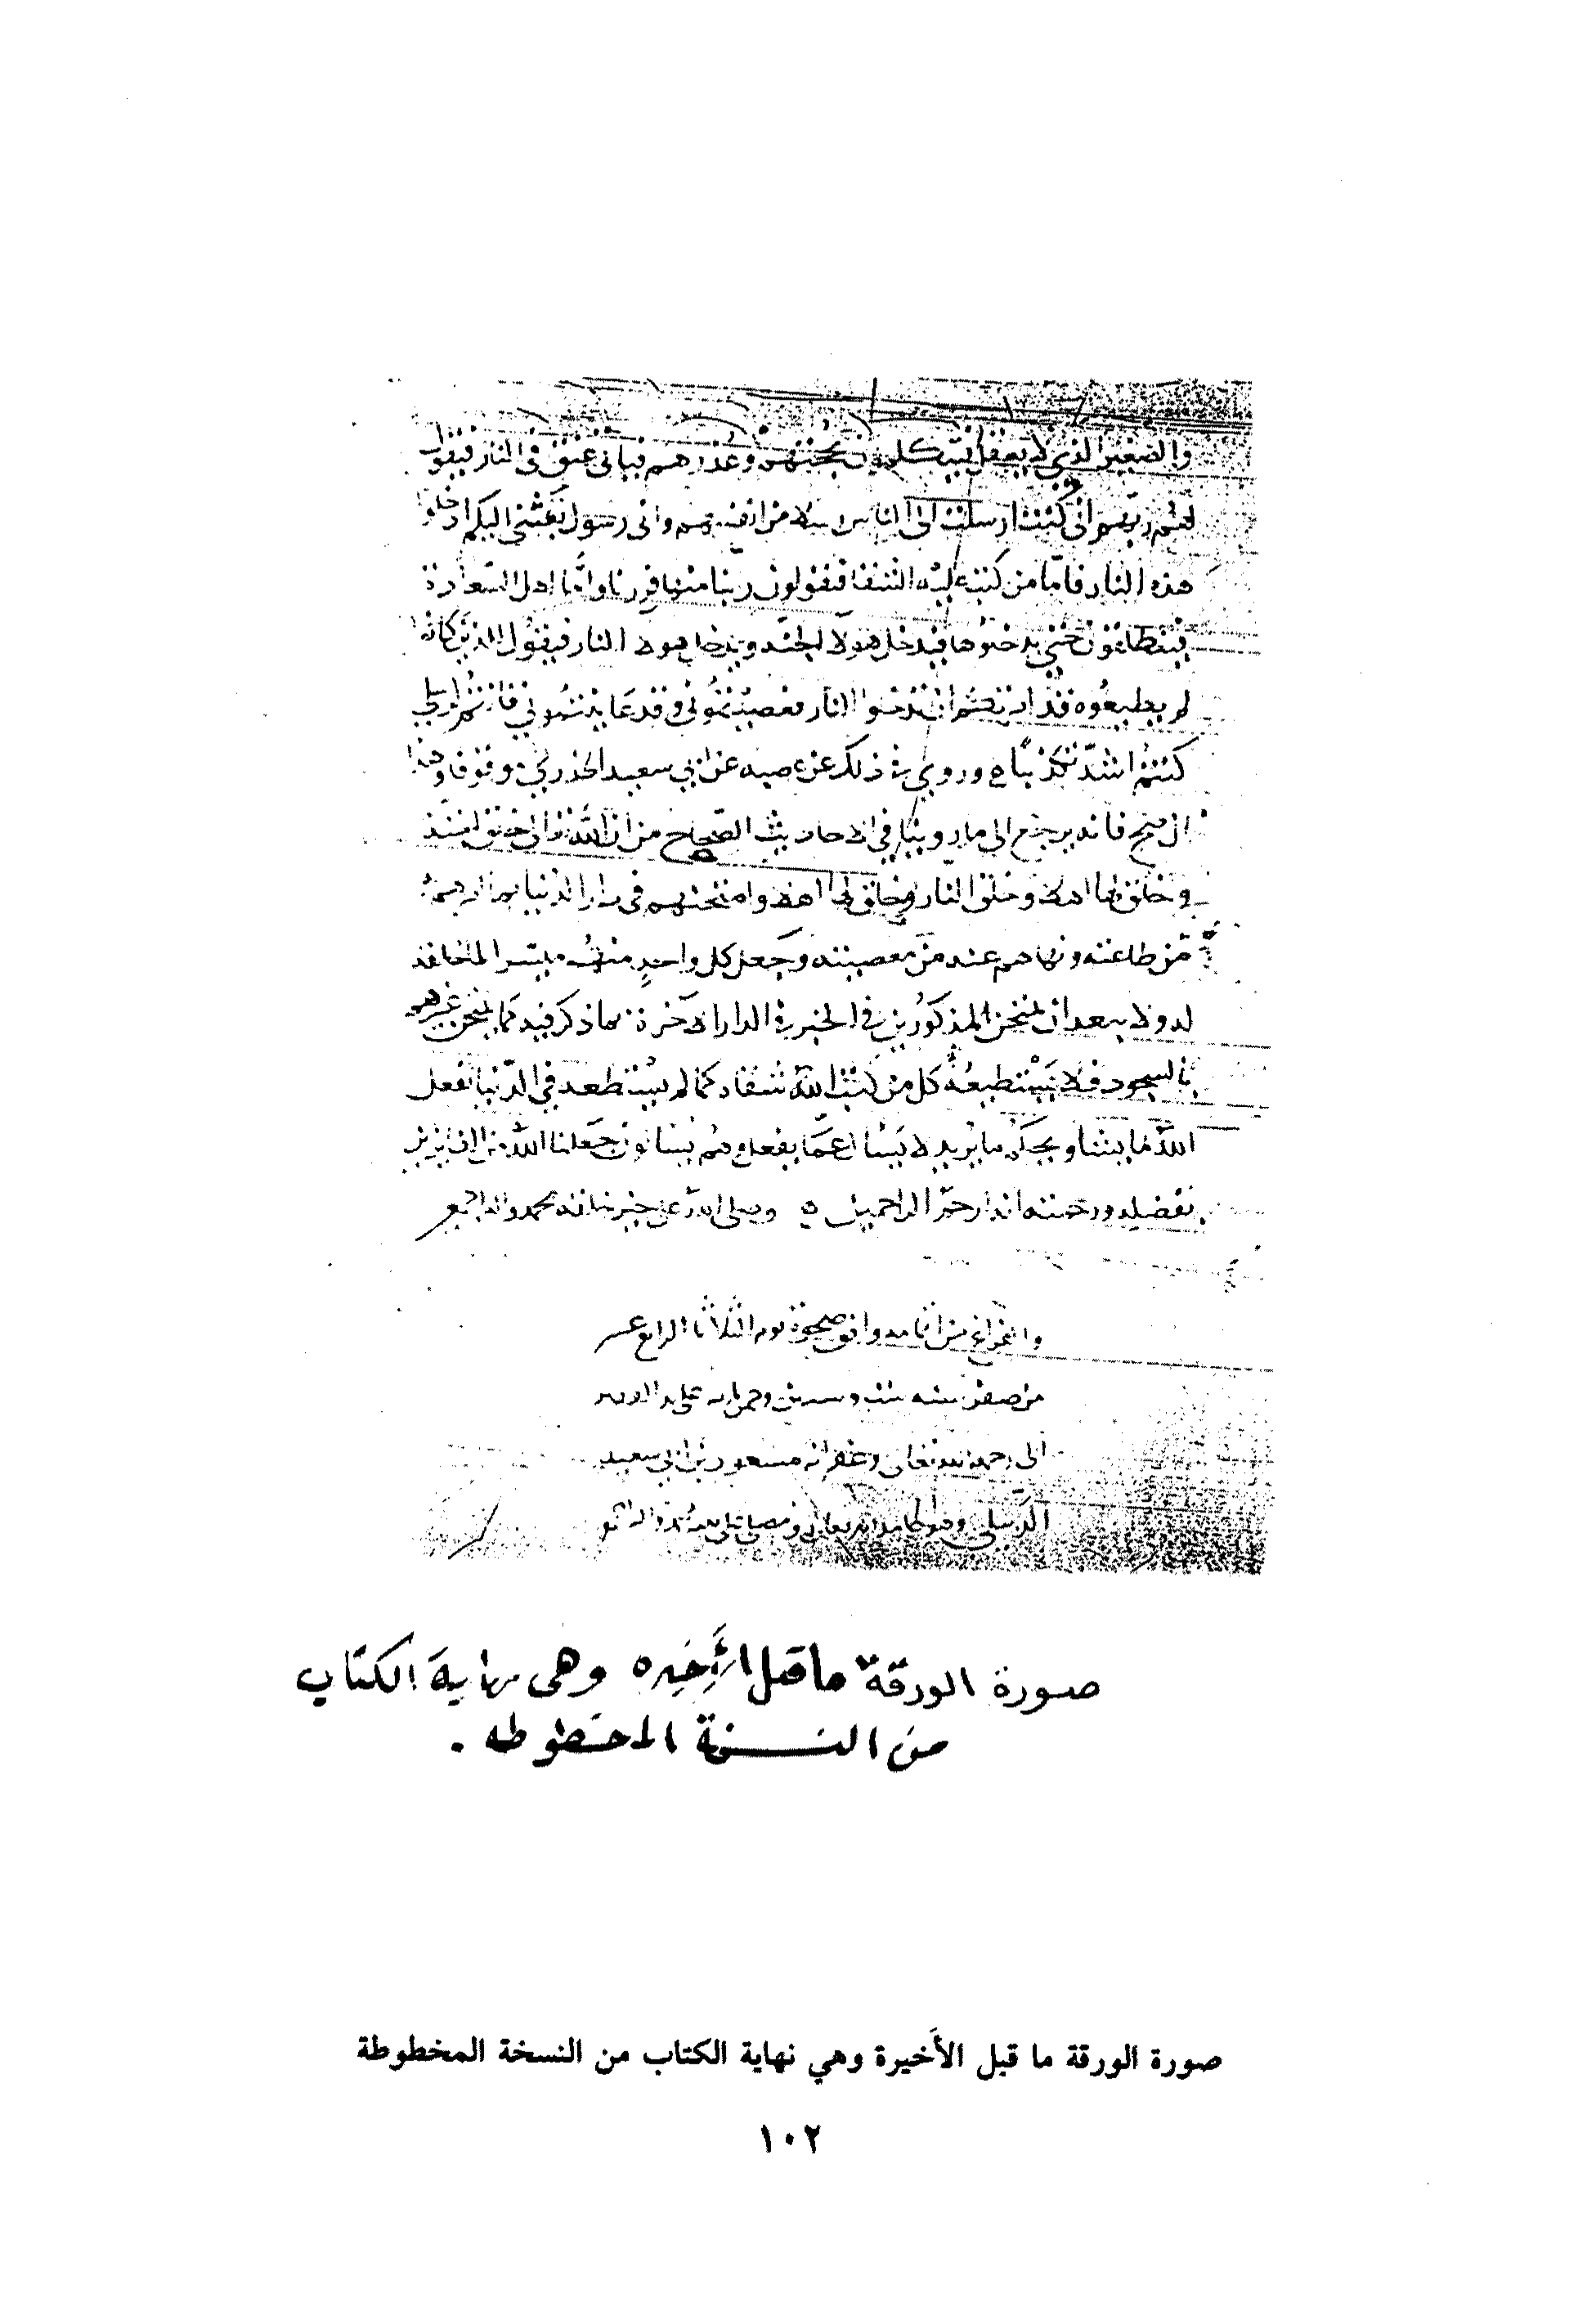 والصغير الذي لا يعقل فيتكلمون بحجتهم وعذرهم فياتي عنق في النار فيقول
لهم ربهم اني كنت ارسلت الى الناس رسلا من انفسهم واني رسول نفسي اليكم ادخلوا
هذه النار فاما من كتب عليه الشقا فيقولون ربنا منها فررنا واما اهل السعادة
فينطلقون حتى يدخلوها فيدخل هولا الجنة ويدخل هولا النار فيقول للذين كانوا
لم يطيعوه قد امرتكم ان تدخلوا النار فعصيتموني وقد عاينتموني فانتم لرسلي
كنتم اشد تكذيبا وروي في ذلك عن عطيه عن ابي سعيد الخدري موقوفا وهذا
ان صح فانه يرجع الى ما روينا في الاحاديث الصحاح من ان الله تعالى خلق الجنة
وخلق لها اهلا وخلق النار وخلق لها اهلا وامتحنهم في دار الدنيا بما امرهم
من طاعته ونهاهم عنه من معصيته وجعل كل واحد منهم ميسرا لما خلقه
له ولا يبعد ان يمتحن المذكورين في الخبر في الدار الاخرة بما ذكر فيه كما يمتحن غيرهم
بالسجود فلا يستطيعه كل من كتب الله شقاه كما لم يستطعه في الدنيا يفعل
الله ما يشا ويحكم ما يريد لا يسال عما يفعل وهم يسالون جعلنا الله من الفايزين
بفضله ورحمته انه ارحم الراحمين وصلى الله على خير خلقه محمد واله اجمعين
والفراغ من اتمامه وافق ضحوة يوم الثلاثا الرابع عشر
من صفر سنه على يد
الى رحمة الله تعالى وغفرانه مسعود بن ابي سعيد
صورة الورقة ما قبل الأخيره وهى نهاية الكتاب
من النسخة المخطوطه .
صورة الورقة ما قبل الأخيرة وهي نهاية الكتاب من النسخة المخطوطة
١٠٢